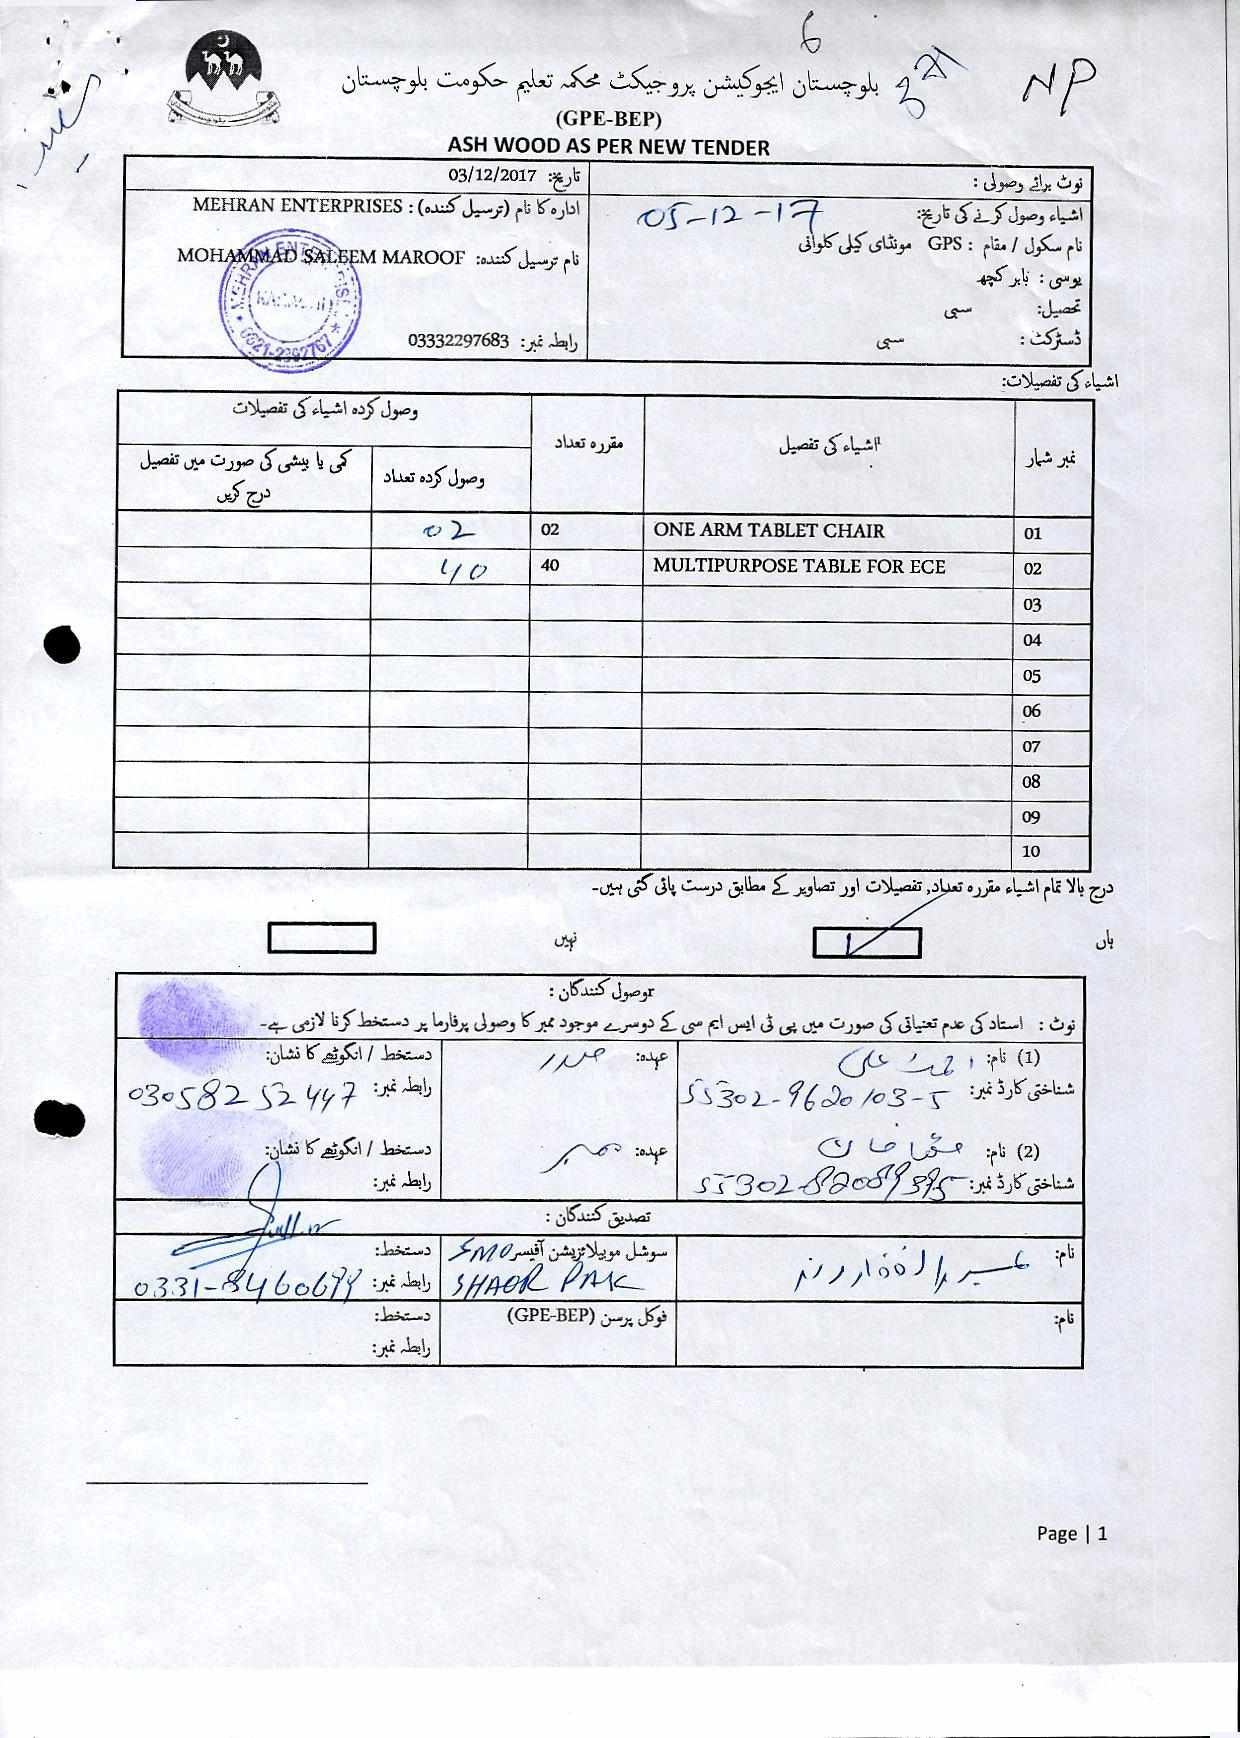 6
NP
بلوچستان ایجوکیشن پروجیکٹ محکمہ تعلیم حکومت بلوچستان
(GPE-BEP)
ASH WOOD AS PER NEW TENDER
نوٹ برائے وصولی :
تاریخ: 03/12/2017
اشیاء وصول کرنے کی تاریخ: 05-12-17
ادارہ کا نام (ترسیل کنندہ) : MEHRAN ENTERPRISES
نام سکول / مقام : GPS مونڈای کیلی کلوانی
نام ترسیل کنندہ: MOHAMMAD SALEEM MAROOF
یوسی : بابر کچھ
تحصیل: سبی
ڈسٹرکٹ : سبی
رابطہ نمبر: 03332297683
MEHRAN ENTERPRISES
KARACHI
0321-2392767
اشیاء کی تفصیلات:
نمبر شمار
اشیاء کی تفصیل
مقررہ تعداد
وصول کردہ اشیاء کی تفصیلات
وصول کردہ تعداد
کمی یا بیشی کی صورت میں تفصیل درج کریں
01 ONE ARM TABLET CHAIR 02 02
02 MULTIPURPOSE TABLE FOR ECE 40 40
03
04
05
06
07
08
09
10
درج بالا تمام اشیاء مقررہ تعداد, تفصیلات اور تصاویر کے مطابق درست پائی گئی ہیں۔
ہاں
نہیں
وصول کنندگان :
نوٹ : استاد کی عدم تعنیاتی کی صورت میں پی ٹی ایس ایم سی کے دوسرے موجود ممبر کا وصولی پرفارما پر دستخط کرنا لازمی ہے۔
(1) نام: احمد علی
عہدہ: صدر
دستخط / انگوٹھے کا نشان:
شناختی کارڈ نمبر: 55302-9620103-5
رابطہ نمبر: 03058252447
(2) نام: خان
عہدہ: ممبر
دستخط / انگوٹھے کا نشان:
شناختی کارڈ نمبر:
رابطہ نمبر:
تصدیق کنندگان :
نام:
سوشل موبیلائزیشن آفیسر SMO
SHAOR PAK
دستخط:
رابطہ نمبر: 0331-8460699
نام:
فوکل پرسن (GPE-BEP)
دستخط:
رابطہ نمبر:
Page | 1